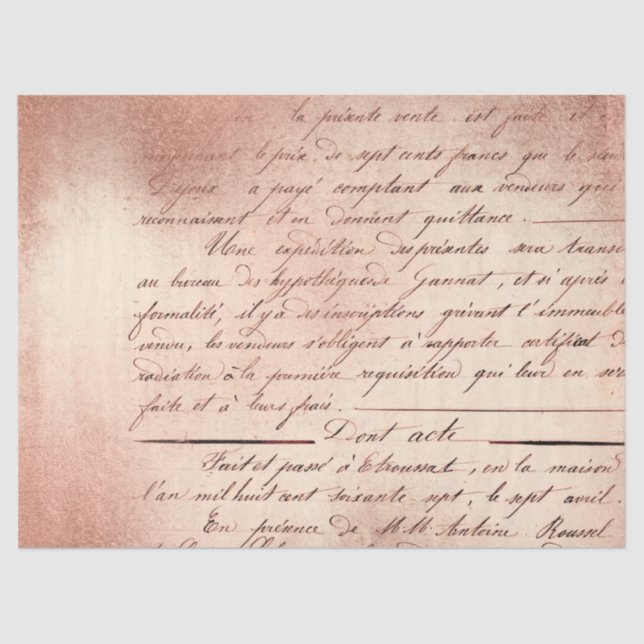 la présente vente est faite et
moyennant le prix de sept cents francs que le sieur
Dejoux a payé comptant aux vendeurs qui
reconnaissent et en donnent quittance.
Une expédition des présentes sera transc
au bureau des hypothèques de Gannat, et si après c
formalité, il y a des inscriptions grévant l'immeuble
vendu, les vendeurs s'obligent à rapporter certificat d
radiation à la première requisition qui leur en ser
faite et à leurs frais.
Dont acte
Fait et passé à Etroussat, en la maison
l'an mil huit cent soixante-sept, le sept avril.
En présence de M.M. Antoine Roussel